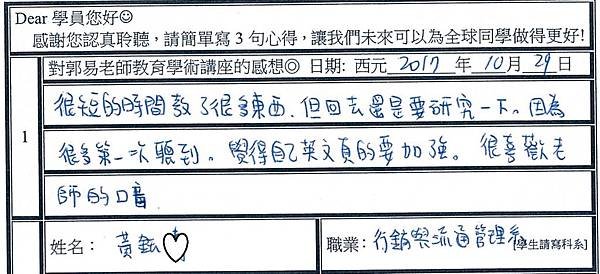 Dear 學員您好☺
感謝您認真聆聽，請簡單寫 3 句心得，讓我們未來可以為全球同學做得更好!
對郭易老師教育學術講座的感想◎ 日期: 西元 2017 年 10 月 29 日
1
很短的時間教了很多東西，但回去還是要研究一下。因為
很多第一次聽到。覺得自己英文真的要加強。很喜歡老
師的口音
姓名： 黃鈺♡
職業： 行銷與流通管理系 [學生請寫科系]